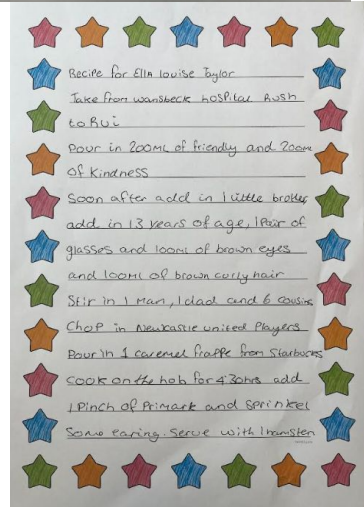 Recipe for Ella Louise Taylor
Take from wansbeck hospital Rush
to Rvi
Pour in 200ML of friendly and 200ML
of Kindness
Soon after add in 1 little brother
add in 13 years of age, 1 Pair of
glasses and 100ml of brown eyes
and 100ml of brown curly hair
Stir in 1 Mam, 1 dad and 6 cousins
Chop in Newcastle united Players
Pour in 1 caremel frappe from Starbucks
Cook on the hob for 430hrs add
1 Pinch of Primark and Sprinkel
Some caring. Serve with 1 hamster